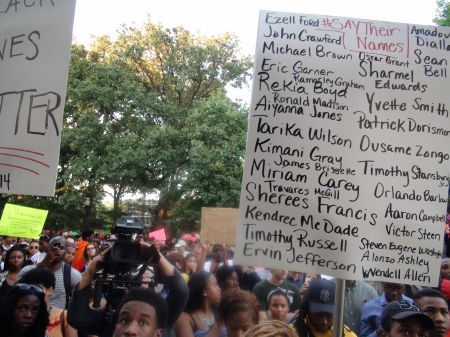 ACK
VES
TTER
14
Ezell Ford #SAYTheir Names
John Crawford
Michael Brown
Eric Garner
Ramarley Graham
Rekia Boyd
Ronald Madison
Aiyanna Jones
Tarika Wilson
Kimani Gray
James Brissette
Miriam Carey
Travares McGill
Sherees Francis
Kendree McDade
Timothy Russell
Ervin Jefferson
Oscar Grant
Sharmel Edwards
Yvette Smith
Patrick Dorismon
Ousame Zongo
Timothy Stansbury
Orlando Barlow
Aaron Campbell
Victor Steen
Steven Eugene Washin
Alonzo Ashley
Wendell Allen
Amadou
Diallo
Sean
Bell